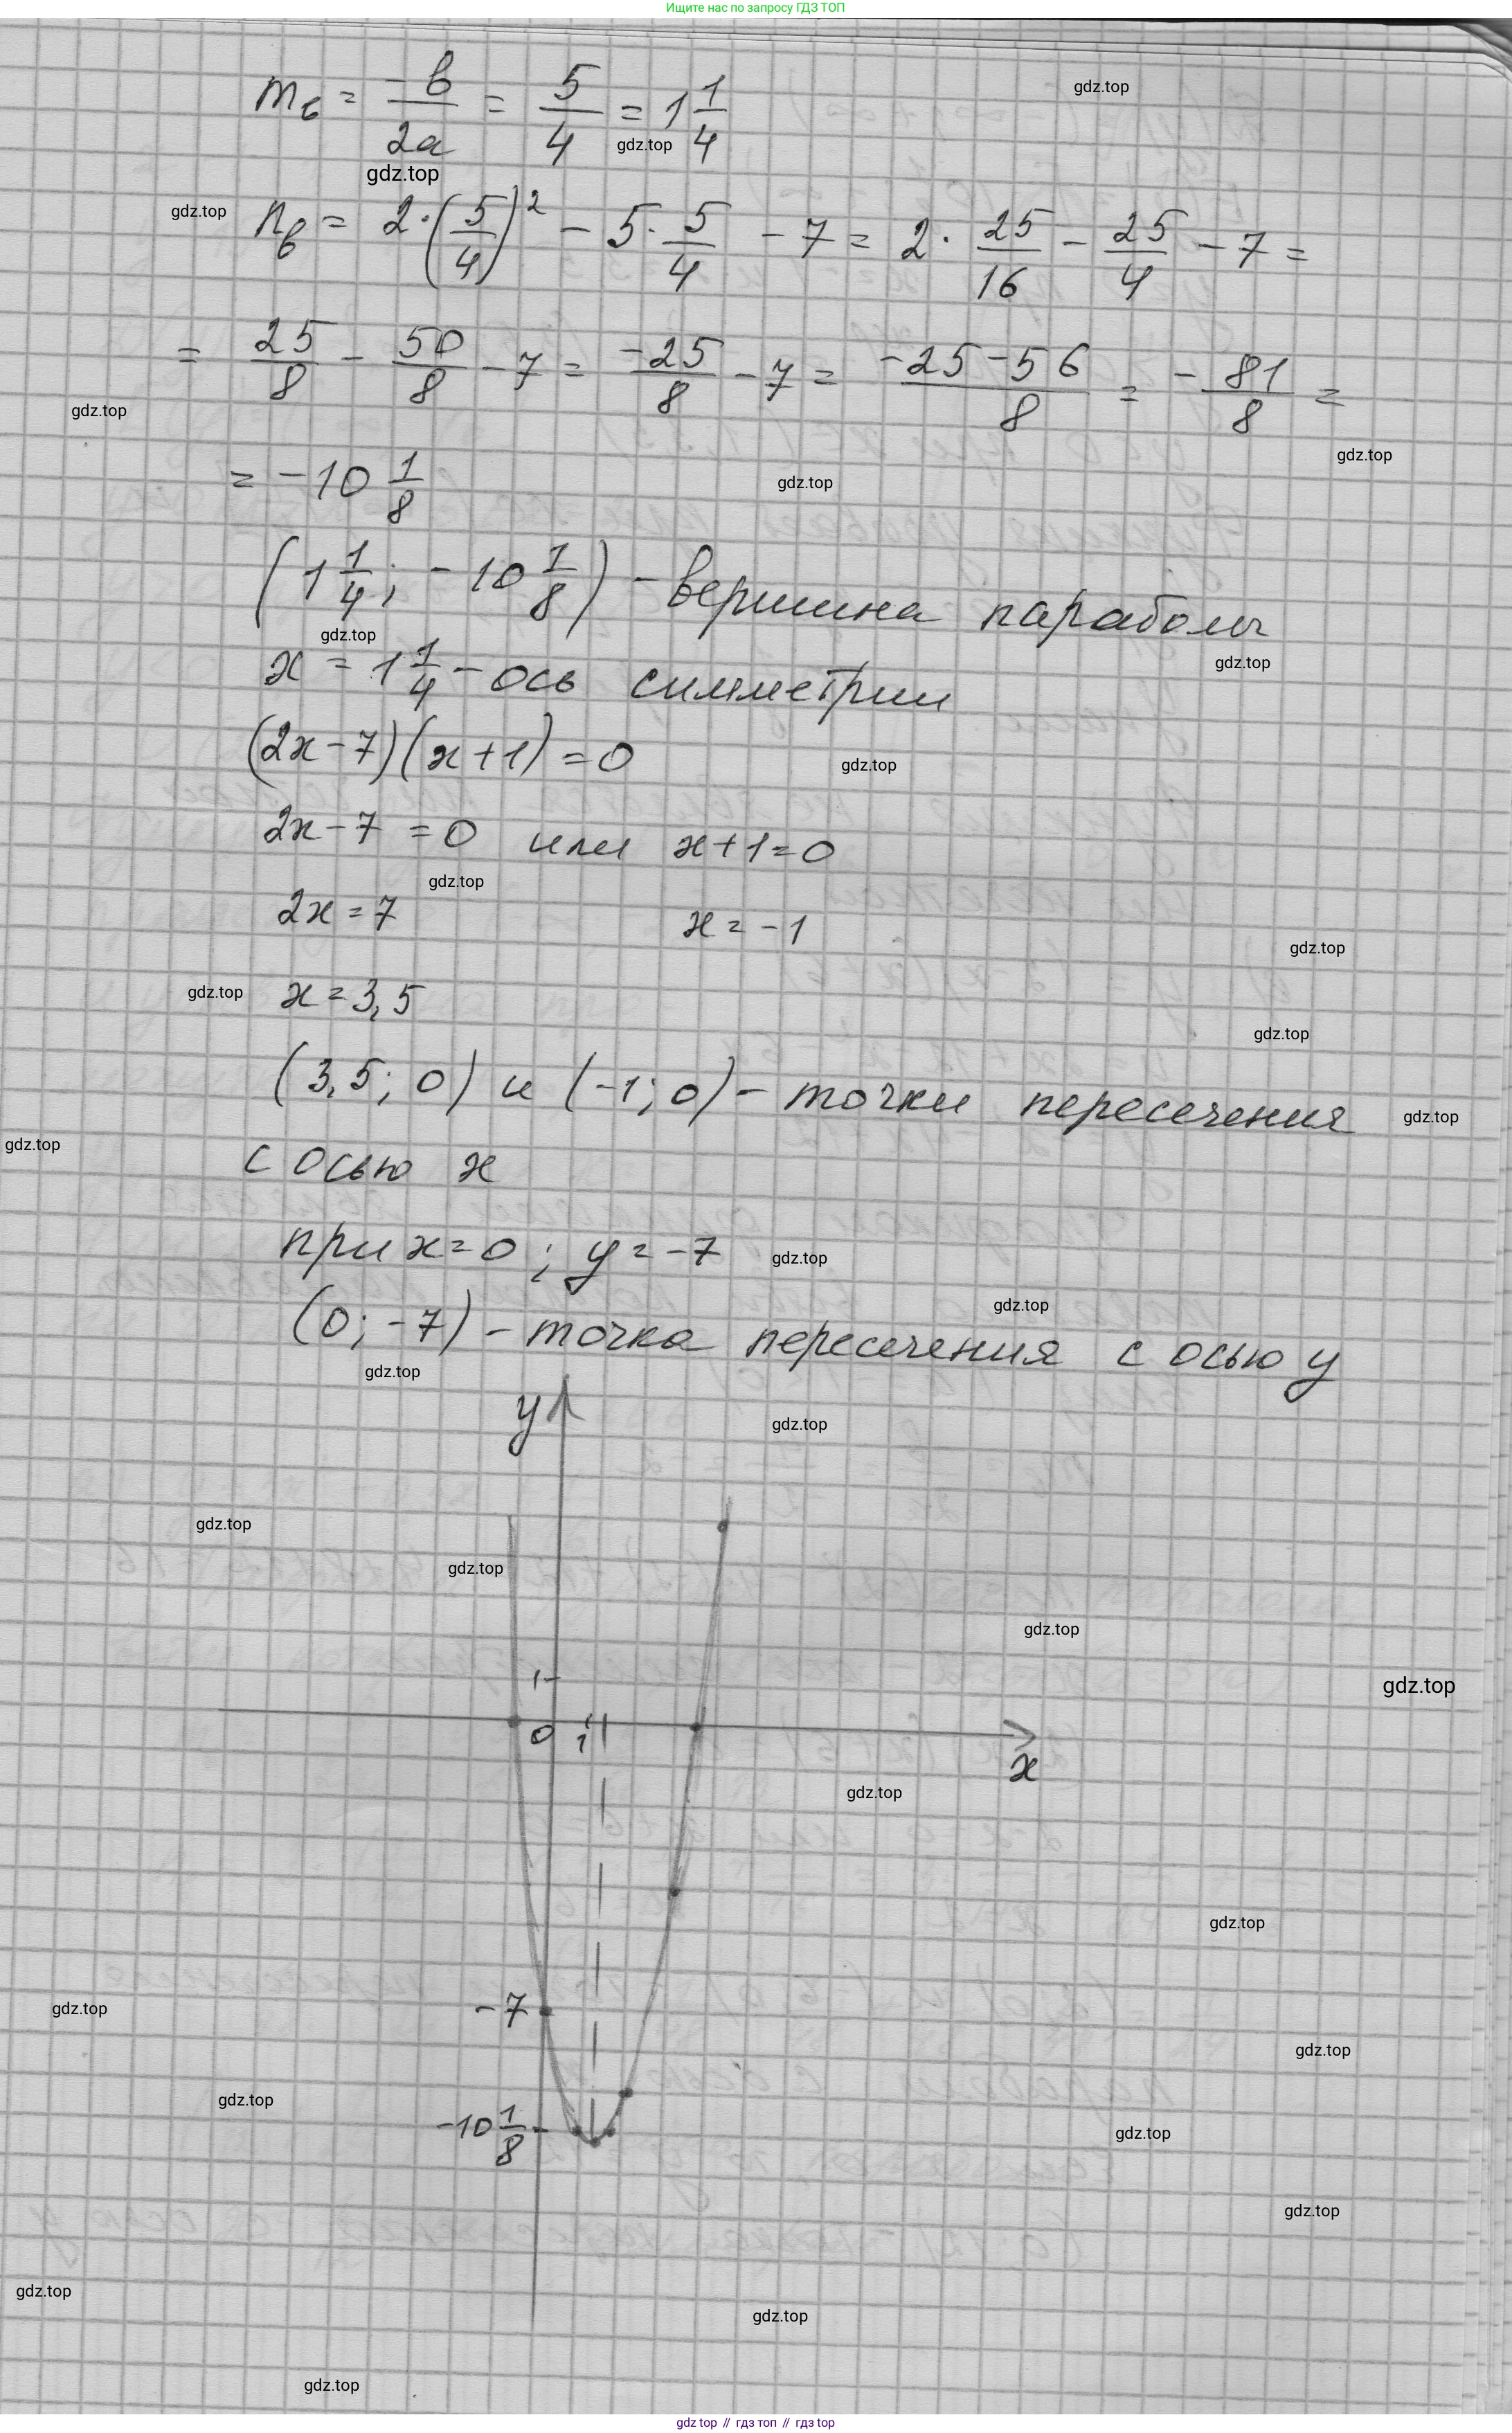 Ищите нас по запросу ГДЗ ТОП
m_в = -b/2a = 5/4 = 1 1/4
n_в = 2·(5/4)² - 5·5/4 - 7 = 2·25/16 - 25/4 - 7 =
= 25/8 - 50/8 - 7 = -25/8 - 7 = -25-56/8 = -81/8 =
= -10 1/8
(1 1/4; -10 1/8) - вершина параболы
x = 1 1/4 - ось симметрии
(2x-7)(x+1)=0
2x-7=0 или x+1=0
2x=7 x=-1
x=3,5
(3,5; 0) и (-1; 0) - точки пересечения
с осью x
при x=0; y=-7
(0; -7) - точка пересечения с осью y
y
1
0 1
x
-7
-10 1/8
gdz.top
gdz top // гдз топ // гдз top